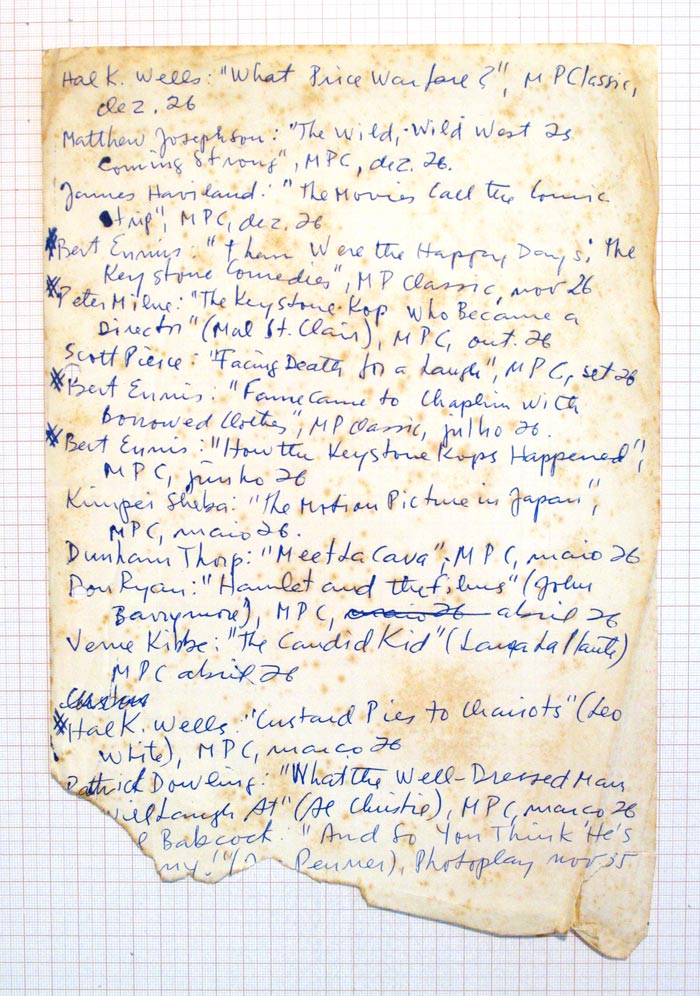 Hal K. Wells: "What Price Warfare?", M P Classic,
dez. 26
Matthew Josephson: "The Wild, Wild West Is
Coming Strong", MPC, dez. 26.
James Haviland: "The Movies Call the Comic
Strip", MPC, dez. 26
Bert Ennis: "Them Were the Happy Days; The
Keystone Comedies", MP Classic, nov 26
Peter Milne: "The Keystone Kop Who Became a
Director" (Mal St. Clair), MPC, out. 26
Scott Pierce: "Facing Death for a Laugh", MPC, set 26
Bert Ennis: "Fame came to Chaplin with
Borrowed Clothes", MP Classic, julho 26.
Bert Ennis: "How the Keystone Kops Happened",
MPC, junho 26
Kimpei Sheba: "The Motion Picture in Japan",
MPC, maio 26.
Dunham Thorp: "Meet La Cava", MPC, maio 26
Don Ryan: "Hamlet and the Films" (John
Barrymore), MPC, maio 26 abril 26
Verne Kibbe: "The Candid Kid" (Laura La Plante)
MPC abril 26
Hal K. Wells: "Custard Pies to Chariots" (Leo
White), MPC, março 26
Patrick Dowling: "What the Well-Dressed Man
Will Laugh At" (Al Christie), MPC, março 26
Babcock: "And So You Think He's
Penner), Photoplay nov 35